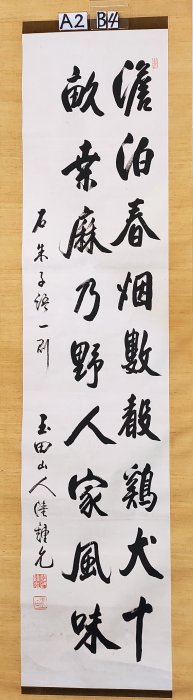 A2 B4
澹泊春烟數聲鷄犬十
畝桒麻乃野人家風味
右朱子語一則
玉田山人